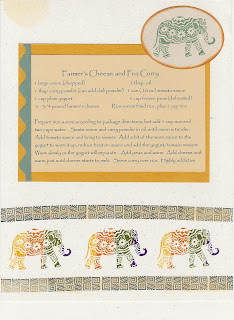 Farmer's Cheese and Pea Curry
1 large onion (chopped) 1 tbsp. oil
1 tbsp curry powder (can add deli powder) 1 can (15 oz) tomato sauce
1 cup plain yogurt 1 cup frozen peas (defrosted)
½ - 3/4 pound farmer's cheese Rice or rice fried rice, plus 1 cup rice
Prepare rice according to package directions, but add 1 cup
two cups water. Saute onion and curry powder in oil, until onion is tender.
Add tomato sauce and bring to simmer. Add a bit of the warm sauce to the
yogurt to warm it up, reduce heat on sauce and add the yogurt/tomato mixture.
Warm slowly or the yogurt will separate. Add peas and warm. Add cheese and
warm just until cheese starts to melt. Serve curry over rice. Highly addictive